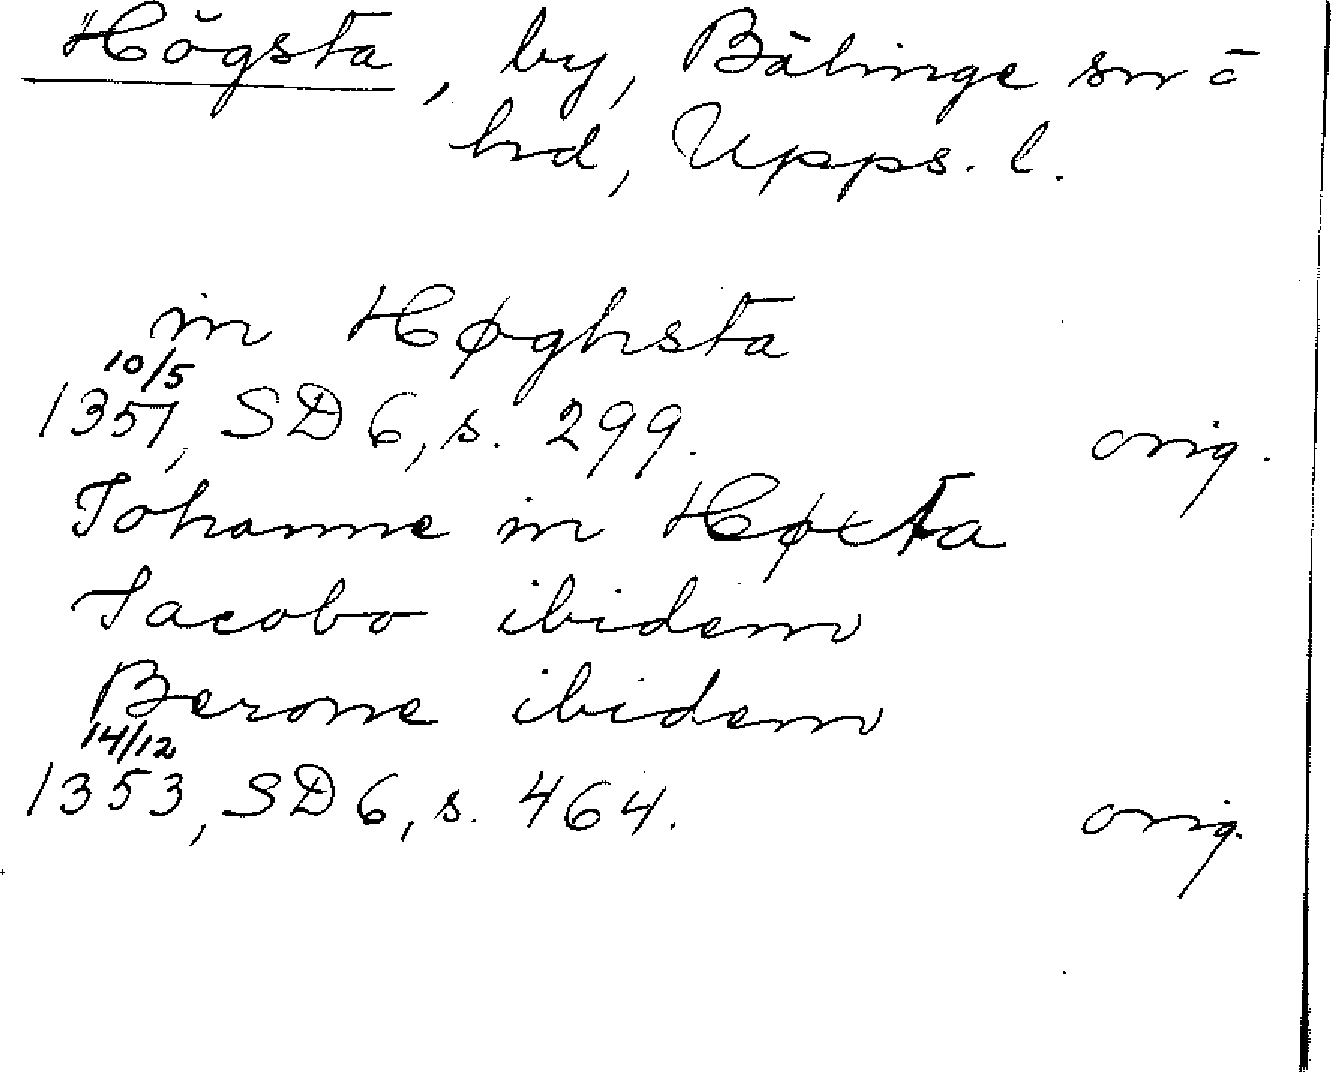 Högsta, by, Bälinge sn o
hd, Upps. l.
in Høghsta
10/5
1351, SD 6, s. 299. orig.
Johanne in Høxta
Jacobo ibidem
Berone ibidem
14/12
1353, SD 6, s. 464. orig.